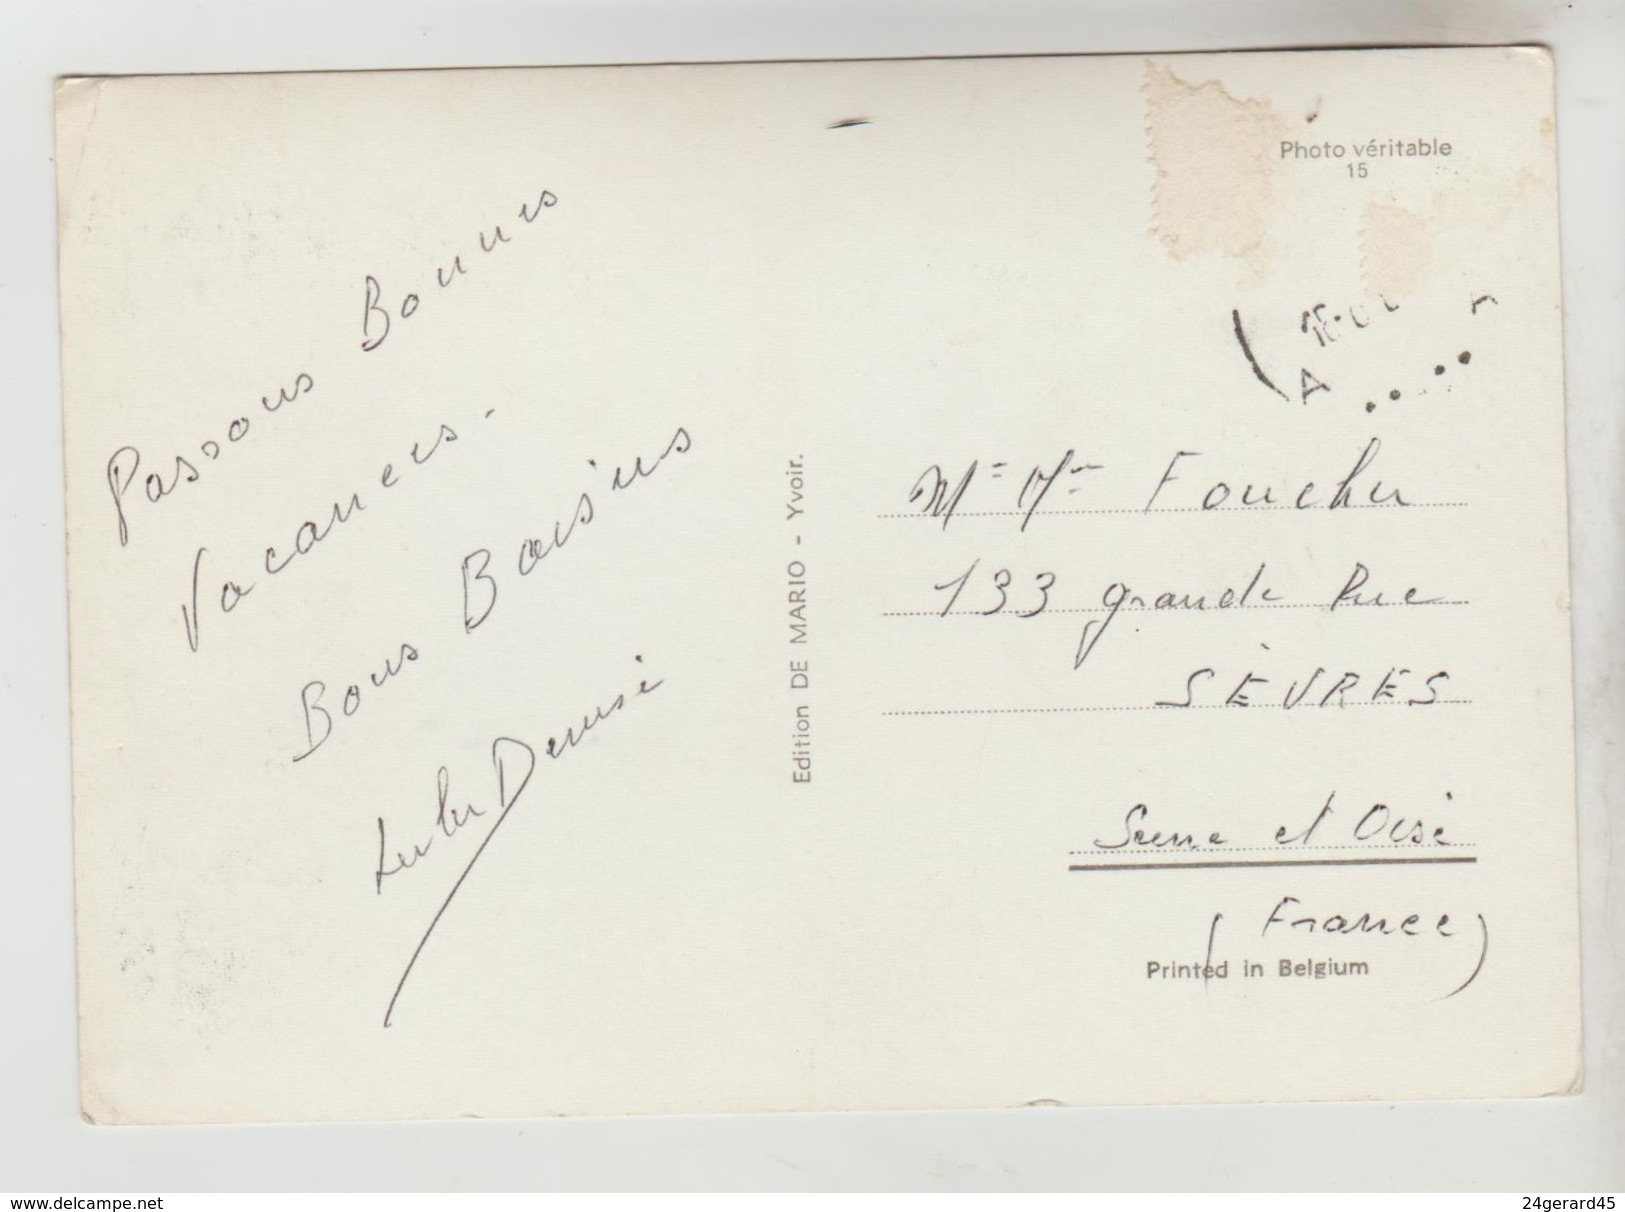 Passons Bonnes
Vacances.
Bons Baisers
Denise
Photo véritable
15
Edition DE MARIO - Yvoir.
Mr Mme Foucher
133 grande Rue
SÈVRES
Seine et Oise
(France)
Printed in Belgium
www.delcampe.net
24gerard45